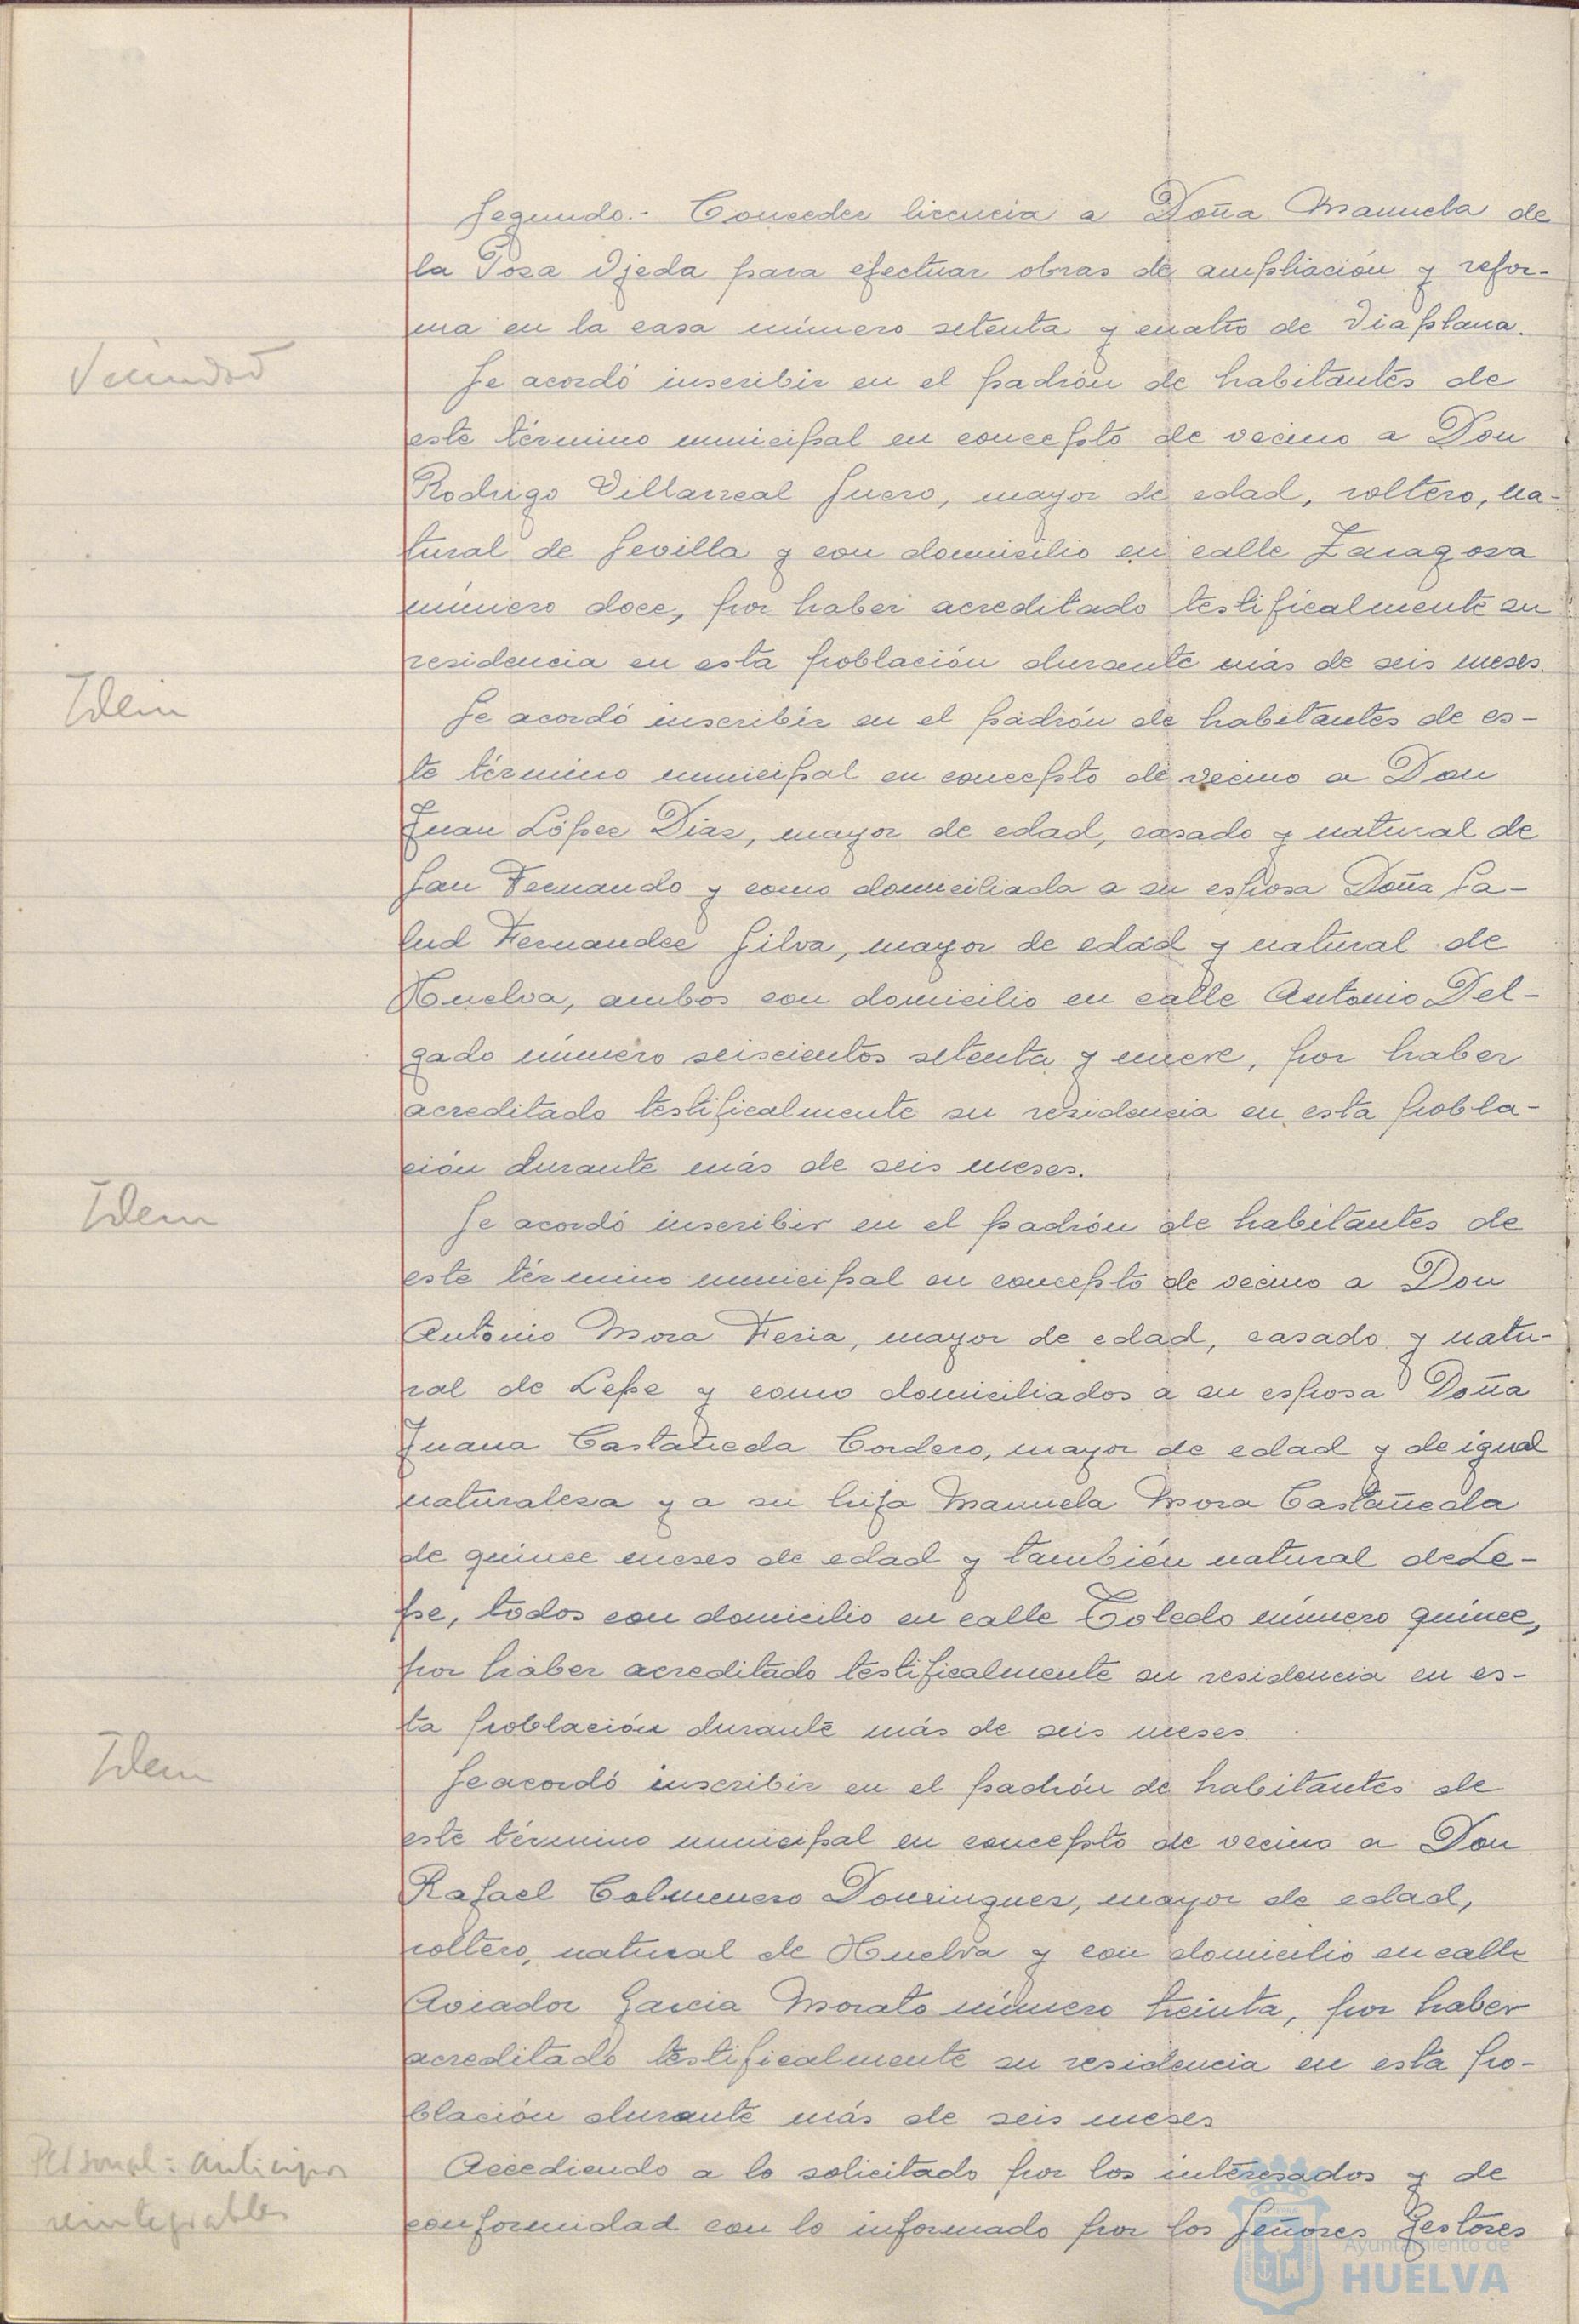 Segundo.- Conceder licencia a Doña Manuela de
la Posa Ojeda para efectuar obras de ampliación y refor-
ma en la casa número setenta y cuatro de Viaplana.
Vecindad
Se acordó inscribir en el padrón de habitantes de
este término municipal en concepto de vecino a Don
Rodrigo Villarreal Suero, mayor de edad, soltero, na-
tural de Sevilla y con domicilio en calle Zaragoza
número doce, por haber acreditado testificalmente su
residencia en esta población durante más de seis meses.
Idem
Se acordó inscribir en el padrón de habitantes de es-
te término municipal en concepto de vecino a Don
Juan López Diaz, mayor de edad, casado y natural de
San Fernando y como domiciliada a su esposa Doña Sa-
lud Fernandez Silva, mayor de edad y natural de
Huelva, ambos con domicilio en calle Antonio Del-
gado número seiscientos setenta y nueve, por haber
acreditado testificalmente su residencia en esta pobla-
ción durante más de seis meses.
Idem
Se acordó inscribir en el padrón de habitantes de
este término municipal en concepto de vecino a Don
Antonio Mora Feria, mayor de edad, casado y natu-
ral de Lepe y como domiciliados a su esposa Doña
Juana Castañeda Cordero, mayor de edad y de igual
naturaleza y a su hija Manuela Mora Castañeda
de quince meses de edad y también natural de Le-
pe, todos con domicilio en calle Toledo número quince,
por haber acreditado testificalmente su residencia en es-
ta población durante más de seis meses.
Idem
Se acordó inscribir en el padrón de habitantes de
este término municipal en concepto de vecino a Don
Rafael Colmenero Dominguez, mayor de edad,
soltero, natural de Huelva y con domicilio en calle
Aviador Garcia Morato número treinta, por haber
acreditado testificalmente su residencia en esta po-
blación durante más de seis meses
Personal: Anticipos
reintegrables
Accediendo a lo solicitado por los interesados y de
conformidad con lo informado por los Señores Gestores
Ayuntamiento de
HUELVA